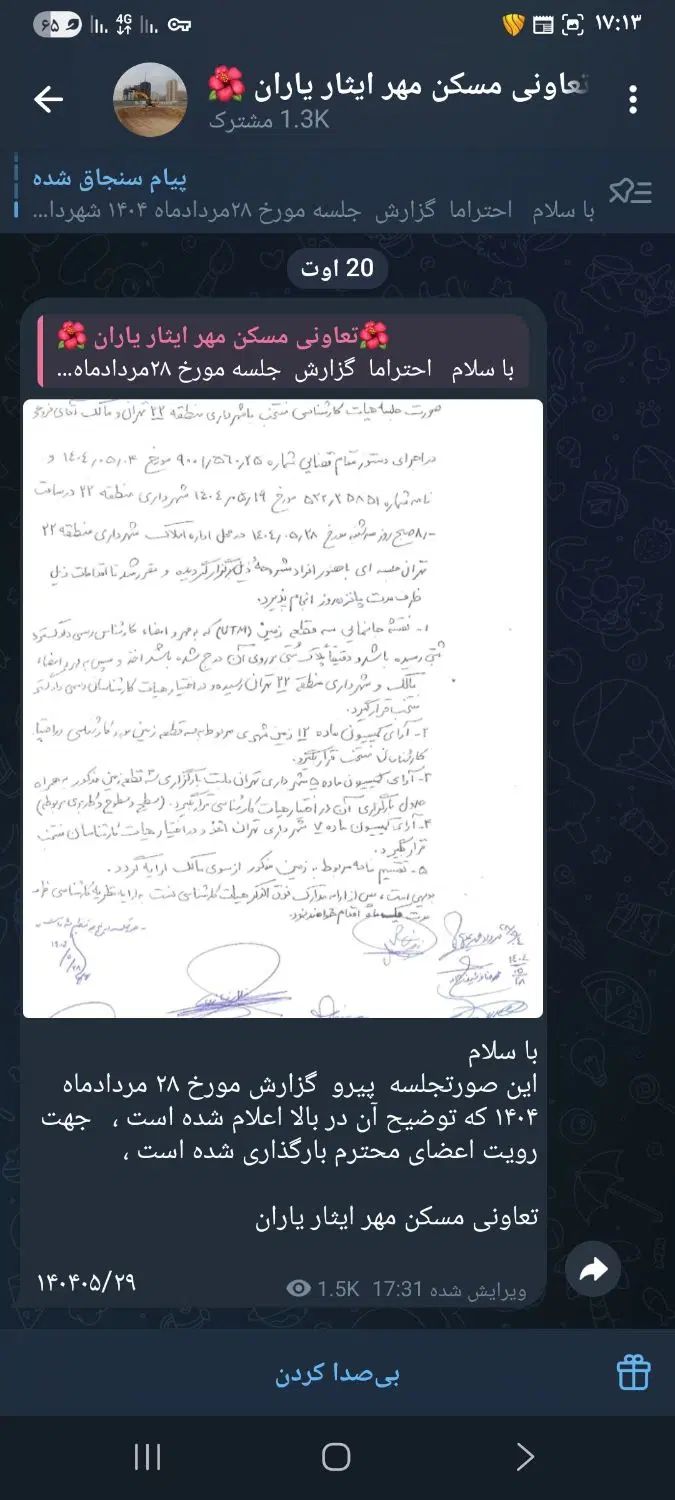 ۱۷:۱۳
4G
۶۵
تعاونی مسکن مهر ایثار یاران 🌺
1.3K مشترک
پیام سنجاق شده
با سلام احتراما گزارش جلسه مورخ ۲۸مردادماه ۱۴۰۴ شهردا...
20 اوت
🌺تعاونی مسکن مهر ایثار یاران 🌺
با سلام احتراما گزارش جلسه مورخ ۲۸مردادماه...
صورت جلسه هیات کارشناسی منتخب با شهرداری منطقه ۲۲ تهران و مالک آقای
در اجرای دستور مقام قضایی شماره مورخ ۱۴۰۴،۰۵،۰۴ و
نامه شماره مورخ ۱۴۰۴،۵،۱۹ شهرداری منطقه ۲۲ در ساعت
صبح روز سه شنبه مورخ ۱۴۰۴،۰۵،۲۸ در محل اداره املاک شهرداری منطقه ۲۲
تهران جلسه ای با حضور افراد مشروحه ذیل برگزار گردیده و مقرر شد تا اقدامات ذیل
ظرف مدت پانزده روز انجام پذیرد.
۱- نقشه جانمایی سه قطعه زمین (UTM) که به مهر و امضاء کارشناس رسمی دادگستری
رسیده باشد و دقیقاً پلاک ثبتی بر روی آن درج شده باشد اخذ و سپس به مهر و امضاء
مالک و شهرداری منطقه ۲۲ تهران رسیده و در اختیار هیات کارشناسان رسمی دادگستری
منتخب قرار گیرد.
۲- آرای کمیسیون ماده ۱۲ زمین شهری مربوط به سه قطعه زمین مورد کارشناسی در اختیار
کارشناسان منتخب قرار گیرد.
۳- آرای کمیسیون ماده ۵ شهرداری تهران بارگزاری سه قطعه زمین مذکور به همراه
جدول بارگزاری آن در اختیار هیات کارشناسی قرار گیرد. (سطح و سطوح و کاربری مربوطه)
۴- آرای کمیسیون ماده ۷ شهرداری تهران اخذ و در اختیار هیات کارشناسان منتخب
قرار گیرد.
۵- تقسیم نامه مربوط به زمین مذکور از سوی مالک ارایه گردد.
بدیهی است، پس از ارایه مدارک فوق الذکر هیات کارشناسی نسبت به ارایه نظریه کارشناسی ظرف
مدت اقدام خواهند نمود.
با سلام
این صورتجلسه پیرو گزارش مورخ ۲۸ مردادماه
۱۴۰۴ که توضیح آن در بالا اعلام شده است ، جهت
رویت اعضای محترم بارگذاری شده است ،
تعاونی مسکن مهر ایثار یاران
۱۴۰۴۰۵/۲۹
ویرایش شده 17:31 1.5K
بی‌صدا کردن